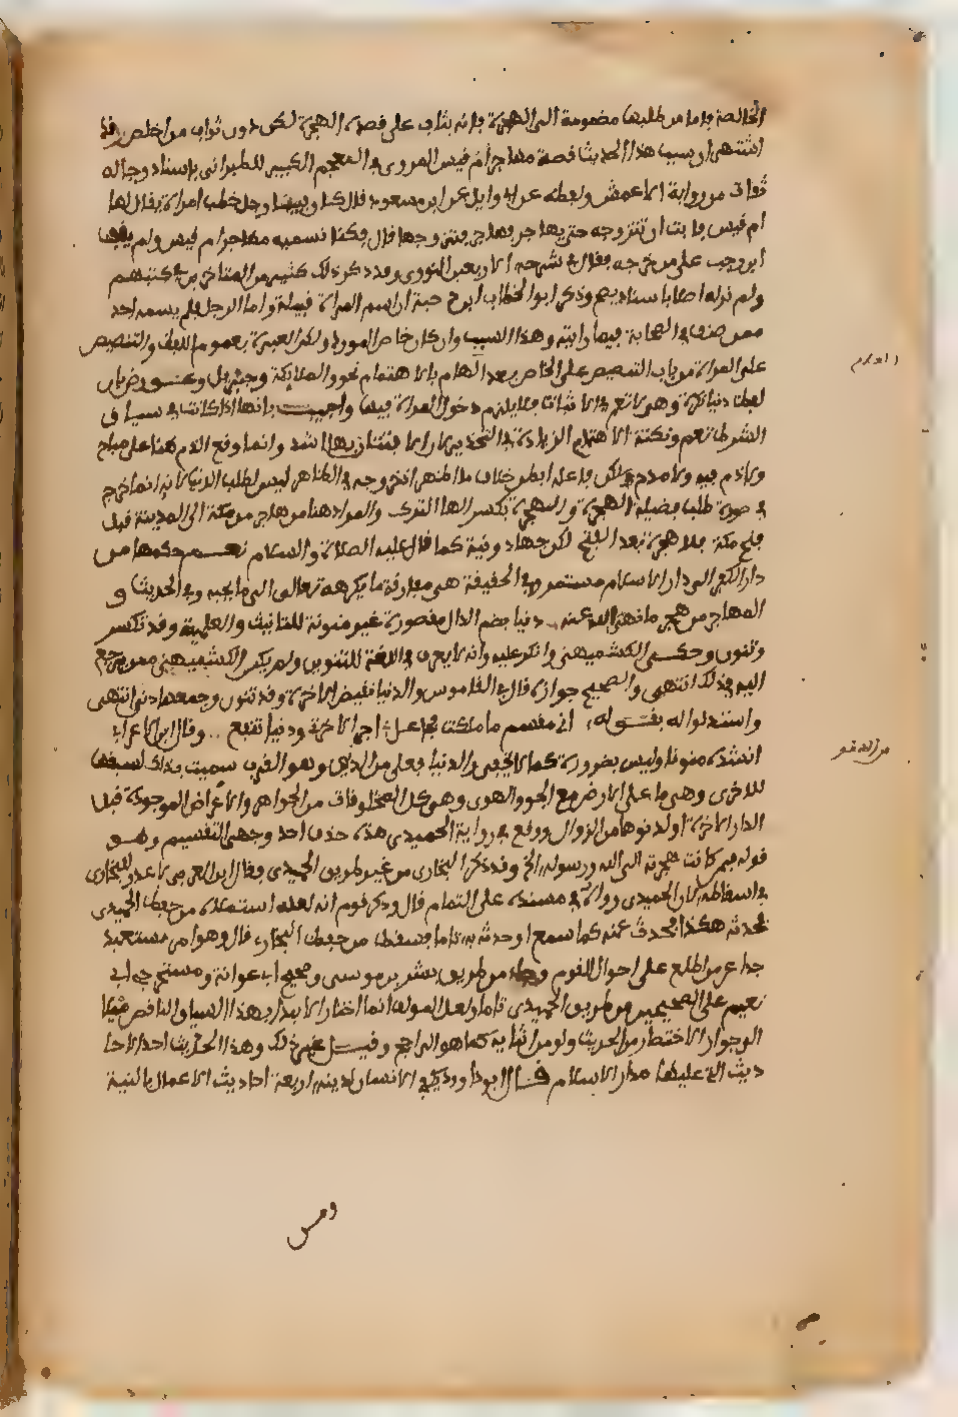 الخالصة فاما من طلبها مضمومة الى الهجرة فانه يثاب على قصده الهجرة لكن دون ثواب من اخلص وقد
اشتهر ان سبب هذا الحديث قصة مهاجر ام قيس المروى في المعجم الكبير للطبراني باسناد رجاله
ثقات من رواية الاعمش ولفظه عن ابي وايل عن ابن مسعود قال كان بيننا رجل خطب امراة يقال لها
ام قيس فابت ان تتزوجه حتى يهاجر فهاجر فتزوجها قال فكنا نسميه مهاجر ام قيس ولم يقف
ابن رجب على من خرجه فقال في شرحه الاربعين النووي وقد ذكر ذلك كثير من المتاخرين في كتبهم
ولم نر له اصلا باسناد يصح وذكر ابو الخطاب ابن دحية ان اسم المراة قيلة واما الرجل فلم يسمه احد
ممن صنف في الصحابة فيما رايته وهذا السبب وان كان خاص المورد ولكن العبرة بعموم اللفظ والتنصيص
على المراة من باب التنصيص على الخاص بعد العام بالاهتمام نحو والملايكة وجبريل وعورض بان
لفظ دنيا نكرة وهي لا تعم في الاثبات فلا يلزم دخول المراة فيها واجيب بانها اذا كانت في سياق
الشرط تعم ونكتة الاهتمام الزيادة في التحذير لان الافتتان بها اشد وانما وقع الذم هنا على مباح
ولا ذم فيه ولا مدح لكن فاعله ابطن خلاف ما اظهر اذ خروجه في الظاهر ليس لطلب الدنيا لانه انما خرج
في صورة طلب فضيلة الهجرة والهجرة بكسر الها الترك والمراد هنا من هاجر من مكة الى المدينة قبل
فتح مكة فلا هجرة بعد الفتح لكن جهاد ونية كما قال عليه الصلاة والسلام نعم حكمها من
دار الكفر الى دار الاسلام مستمر وفي الحقيقة هي مفارقة ما يكرهه تعالى الى ما يحبه وفي الحديث و
المهاجر من هجر ما نهى الله عنه . دنيا بضم الدال مقصورة غير منونة للتانيث والعلمية وقد تكسر
وتنون وحكى الكشميهني وانكر عليه وانه لا يعرف في اللغة للتنوين ولم يكن الكشميهني ممن يرجع
اليه في ذلك انتهى والصحيح جوازه قال في القاموس والدنيا نقيض الاخرة وقد تنون وجمعها دنى انتهى
واستدلوا له بقوله اني مقسم ما ملكت فجاعل اجرا لاخرة ودنيا تنفع .. وقال ابن الاعرابي
انشده منونا وليس بضرورة كما لا يخفى والدنيا فعلى من الدنو وهو القرب سميت بذلك لسبقها
للاخرى وهي ما على الارض مع الجو والهوى وهي كل المخلوقات من الجواهر والاعراض الموجودة قبل
الدار الاخرة او لدنوها من الزوال ووقع في رواية الحميدي هذه حذف احد وجهي التقسيم وهو
قوله فمن كانت هجرته الى الله ورسوله الخ وقد ذكره البخاري من غير طريق الحميدي فقال ابن العربي لا عذر للبخاري
في اسقاطه لان الحميدي رواه في مسنده على التمام قال وذكر قوم انه لعله استملاه من حفظ الحميدي
فحدثه هكذا فحدث عنه كما سمع او حدثه به تاما فسقط من حفظ البخاري قال وهو امر مستبعد
جدا عند من اطلع على احوال القوم وجاء من طريق بشر بن موسى وصحيح ابي عوانة ومستخرج ابي
نعيم على الصحيحين من طريق الحميدي تاما ولعل المولف انما اختار الابتداء بهذا السياق الناقص ميلا
الى جواز الاختصار من الحديث ولو من اثنايه كما هو الراجح وقيل غير ذلك وهذا الحديث احد الاحا
ديث التي عليها مدار الاسلام قال ابو داود يكفي الانسان لدينه اربعة احاديث الاعمال بالنية
ومن